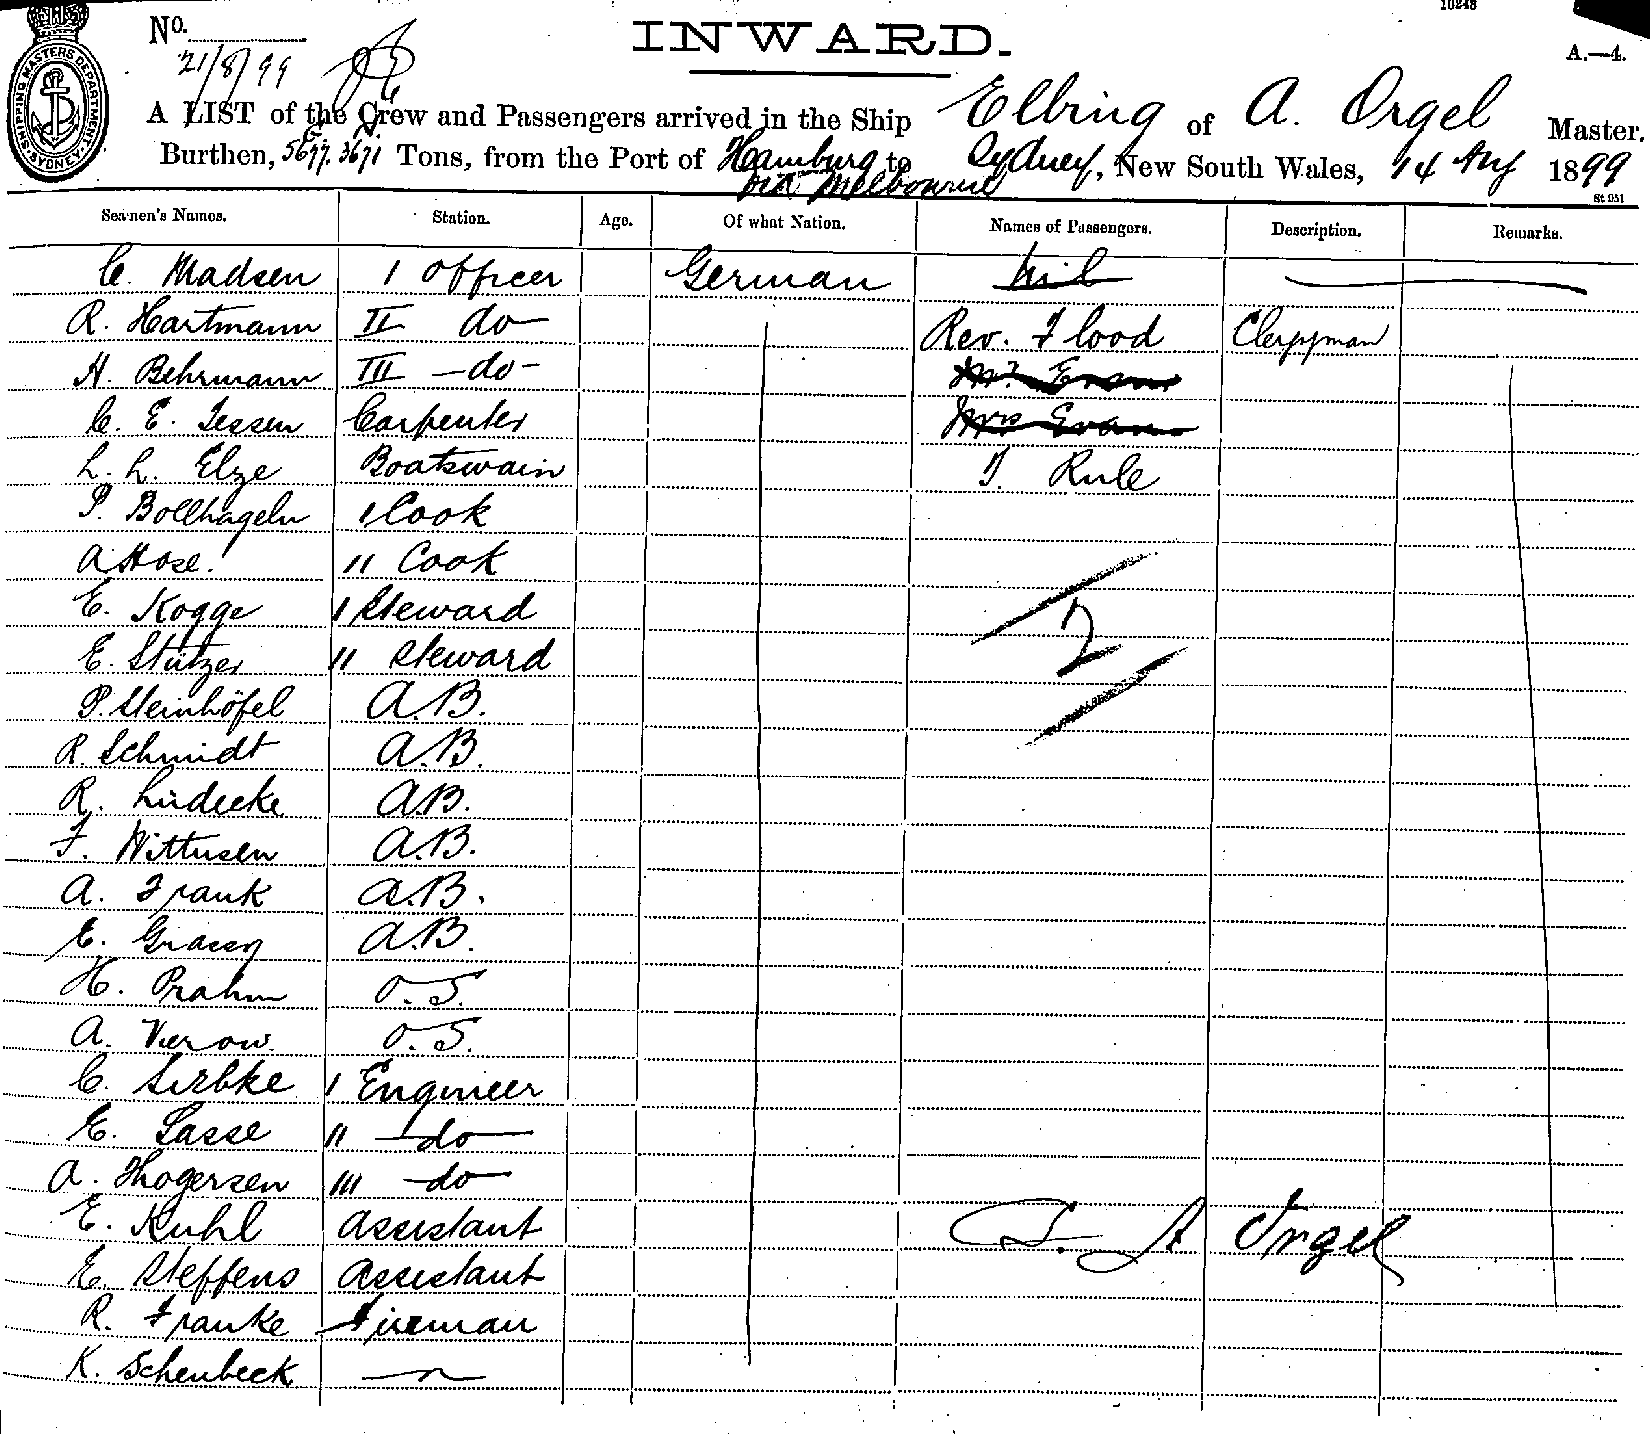 10248
No.
21/8/99
INWARD.
A.—4.
SHIPPING MASTERS DEPARTMENT. SYDNEY.
A LIST of the Crew and Passengers arrived in the Ship Elbing of A. Orgel Master.
Burthen, 5677. 3671 Tons, from the Port of Hamburg to Sydney, New South Wales, 14 Aug 1899
via Melbourne
St 951
Seamen's Names. Station. Age. Of what Nation. Names of Passengers. Description. Remarks.
C. Madsen 1 Officer German Nil
R. Hartmann II do Rev. Flood Clergyman
H. Behrmann III - do - Mr. Evans
C. E. Jessen Carpenter Mrs Evans
L. L. Elze Boatswain T. Rule
P. Bollhageln 1 Cook
A Hose. 11 Cook
E. Kogge 1 Steward
2
E. Stützer 11 Steward
P. Steinhöfel A.B.
R. Schmidt A.B.
R. Lüdecke A.B.
F. Wittusen A.B.
A. Frank A.B.
E. Grassy A.B.
H. Prahm O.S.
A. Vierow. O.S.
C. Lirbke 1 Engineer
E. Sasse 11 do
A. Thogersen 111 do
E. Kuhl Assistant A Orgel
E. Steffens Assistant
R. Franke Fireman
K. Schenbeck "